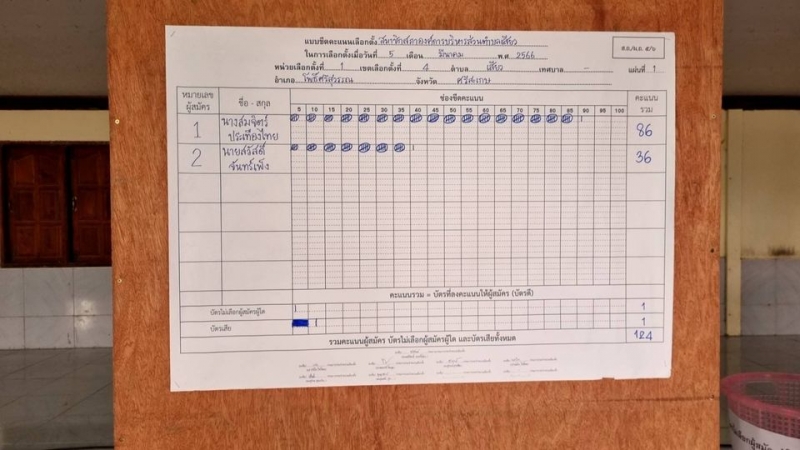 แบบขีดคะแนนเลือกตั้ง สมาชิกสภาองค์การบริหารส่วนตำบลเสียว
ส.ถ./ผ.ถ. ๕/๖
ในการเลือกตั้งเมื่อวันที่ 5 เดือน มีนาคม พ.ศ. 2566
หน่วยเลือกตั้งที่ 1 เขตเลือกตั้งที่ 4 ตำบล เสียว เทศบาล - แผ่นที่ 1
อำเภอ โพธิ์ศรีสุวรรณ จังหวัด ศรีสะเกษ
หมายเลขผู้สมัคร ชื่อ - สกุล ช่องขีดคะแนน คะแนนรวม
5 10 15 20 25 30 35 40 45 50 55 60 65 70 75 80 85 90 95 100
1 นางสมจิตร์ ประเทืองไทย 86
2 นายสวัสดิ์ จันทร์เพ็ง 36
คะแนนรวม = บัตรที่ลงคะแนนให้ผู้สมัคร (บัตรดี)
บัตรไม่เลือกผู้สมัครผู้ใด 1
บัตรเสีย 1
รวมคะแนนผู้สมัคร บัตรไม่เลือกผู้สมัครผู้ใด และบัตรเสียทั้งหมด 124